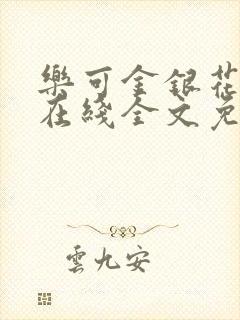 樂可金銀花
在綫全文免
雲九安